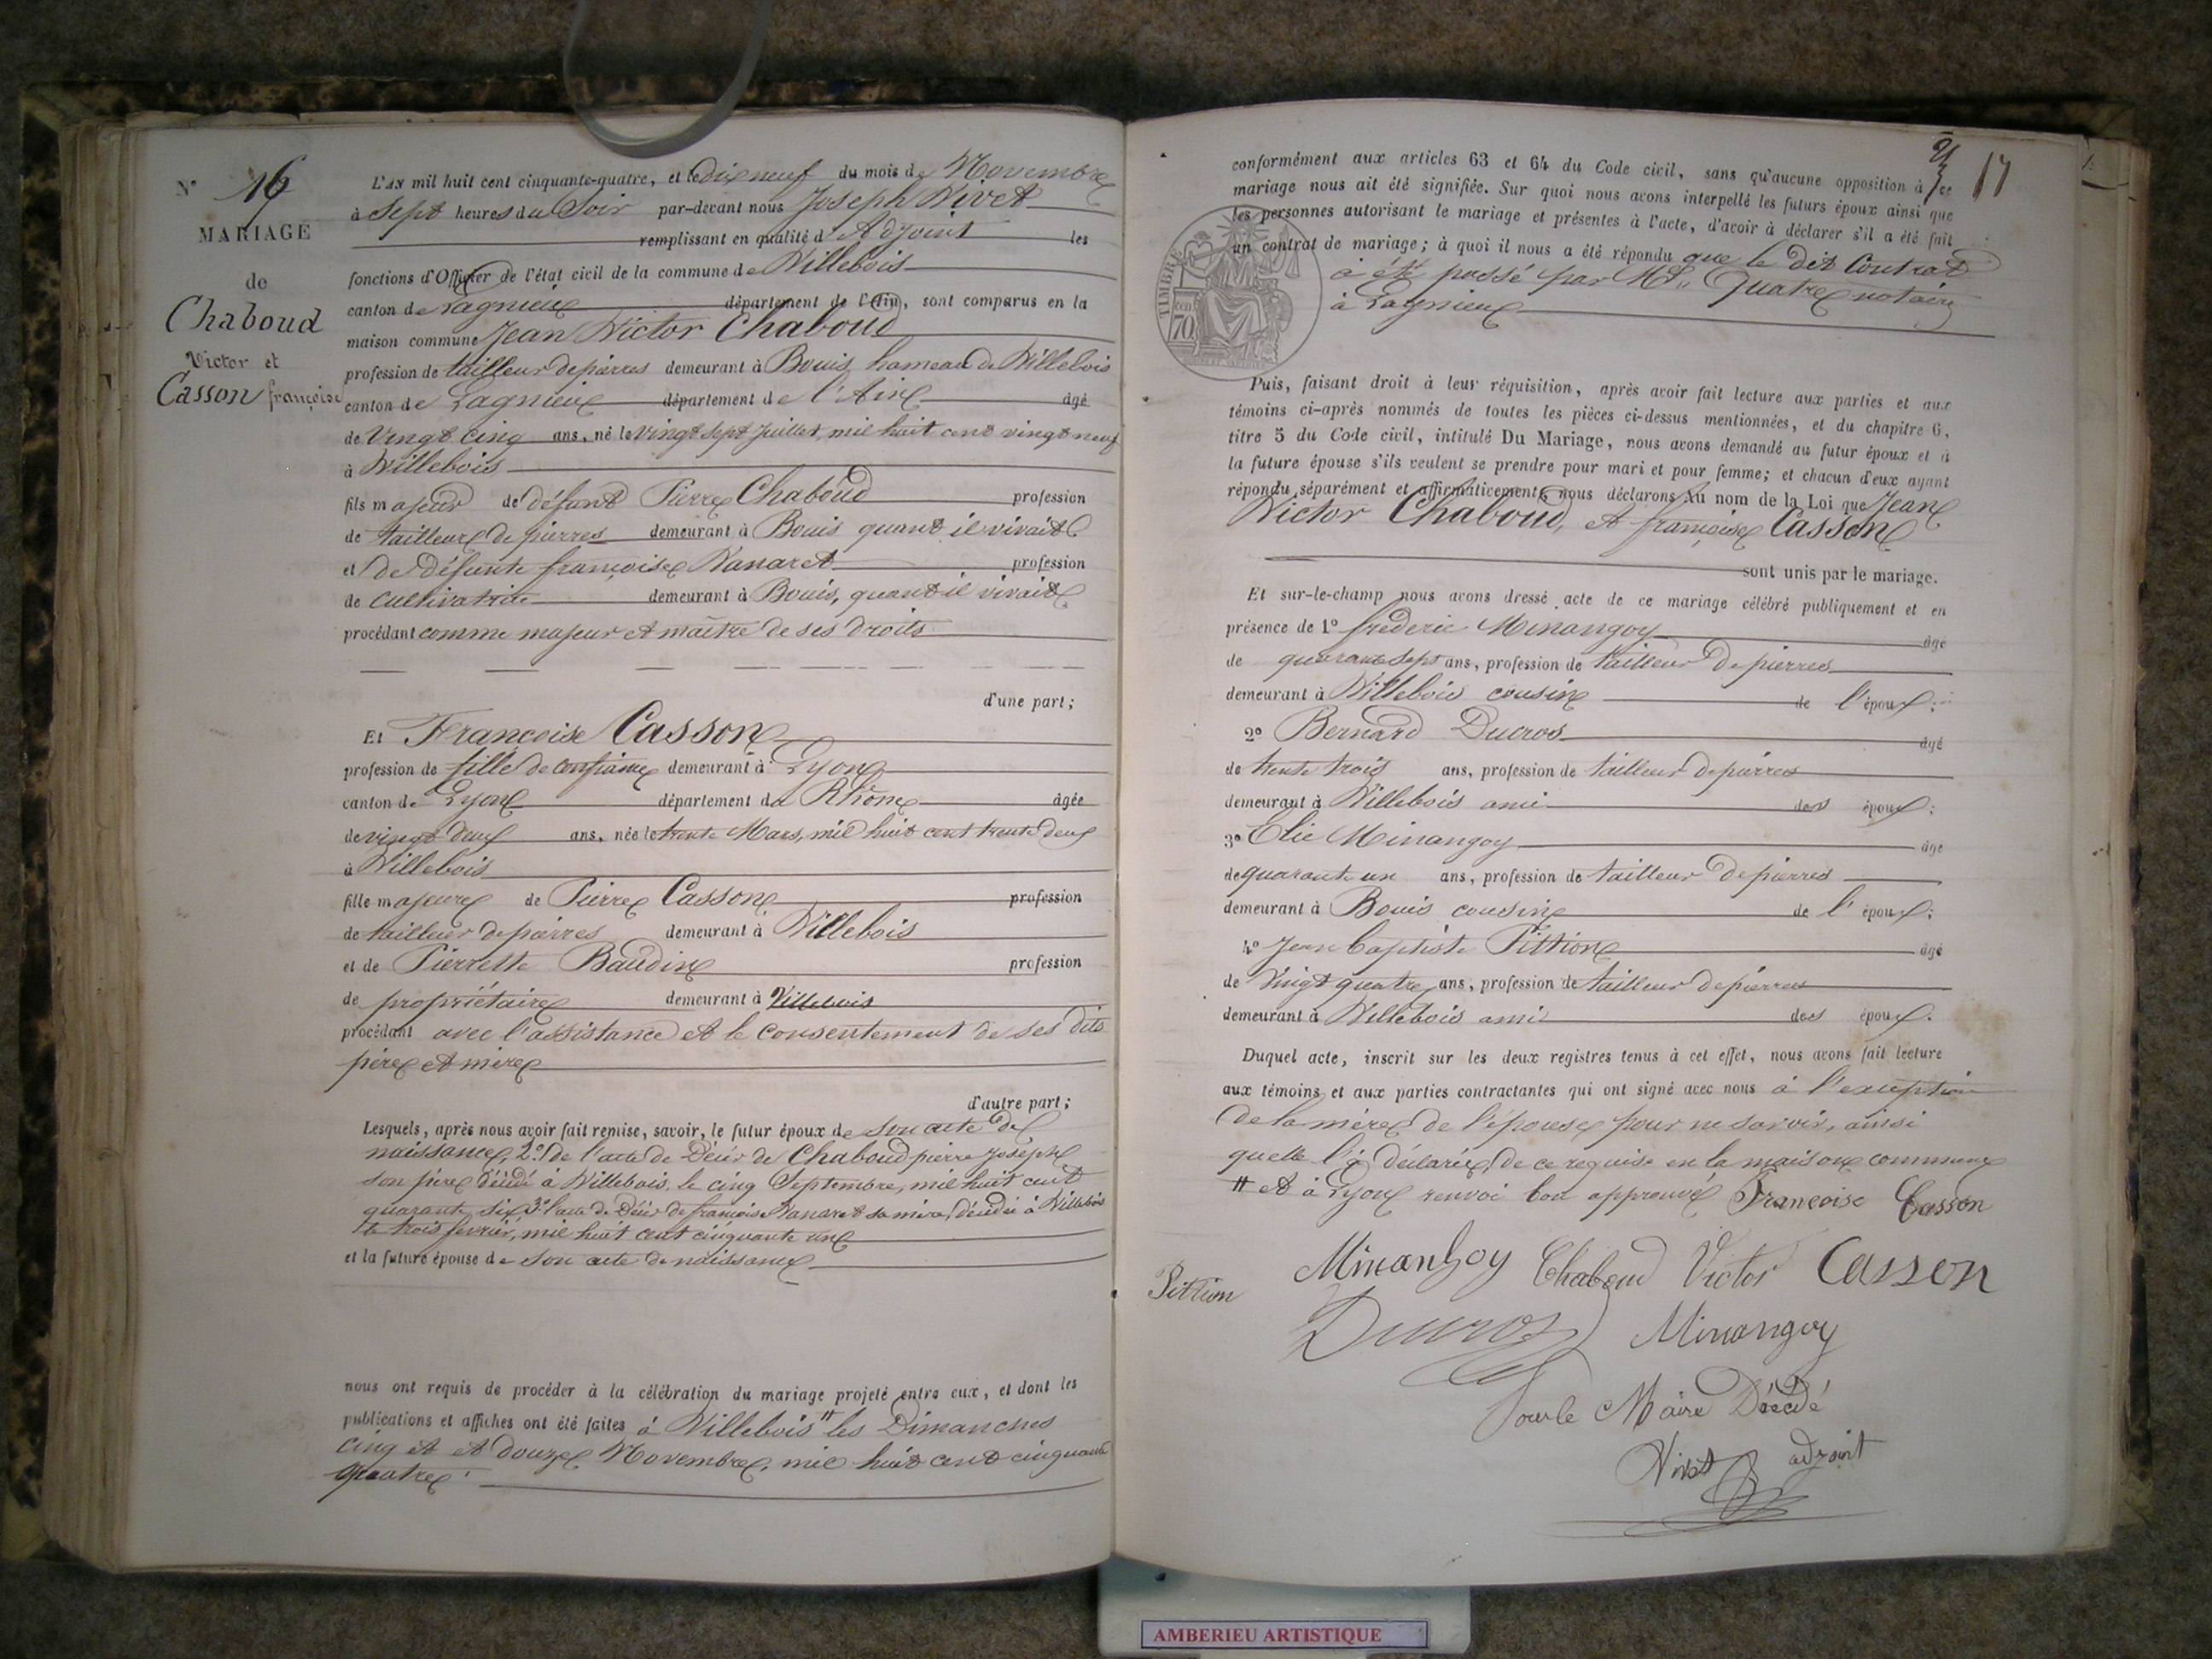 N° 16
MARIAGE
de
Chaboud
Victor et
Casson françoise
L'AN mil huit cent cinquante-quatre, et le dix neuf du mois de Novembre
à Sept heures du Soir par-devant nous Joseph Vivet
remplissant en qualité d'Adjoint les
fonctions d'Officier de l'état civil de la commune de Villebois
canton de Lagnieu département de l'Ain, sont comparus en la
maison commune Jean Victor Chaboud
profession de tailleur de pierres demeurant à Bouis hameau de Villebois
canton de Lagnieu département de l'Ain âgé
de Vingt cinq ans, né le vingt sept Juillet, mil huit cent vingt neuf
à Villebois
fils majeur de défunt Pierre Chaboud profession
de tailleur de pierres demeurant à Bouis quant il vivait
et de défunte françoise Vanaret profession
de cultivatrice demeurant à Bouis, quant il vivait
procédant comme majeur et maître de ses droits
d'une part;
Et Françoise Casson
profession de fille de confiance demeurant à Lyon
canton de Lyon département du Rhône âgée
de vingt deux ans, née le trente Mars, mil huit cent trente deux
à Villebois
fille majeure de Pierre Casson profession
de tailleur de pierres demeurant à Villebois
et de Pierrette Baudin profession
de propriétaire demeurant à Villebois
procédant avec l'assistance et le consentement de ses dits
père et mère
d'autre part;
Lesquels, après nous avoir fait remise, savoir, le futur époux de son acte de
naissance, 2° de l'acte de Décès de Chaboud pierre Joseph
son père décédé à Villebois, le cinq Septembre, mil huit cent
quarante six 3° l'acte de Décès de françoise Vanaret sa mère, décédée à Villebois
le trois fevrier, mil huit cent cinquante un
et la future épouse de son acte de naissance
nous ont requis de procéder à la célébration du mariage projeté entre eux, et dont les
publications et affiches ont été faites à Villebois # les Dimanches
cinq et et douze Novembre, mil huit cent cinquante
quatre.
17
conformément aux articles 63 et 64 du Code civil, sans qu'aucune opposition à ce
mariage nous ait été signifiée. Sur quoi nous avons interpellé les futurs époux ainsi que
les personnes autorisant le mariage et présentes à l'acte, d'avoir à déclarer s'il a été fait
un contrat de mariage; à quoi il nous a été répondu que le dit Contrat
à été passé par Me Quatre notaire
à Lagnieu
TIMBRE
70
Puis, faisant droit à leur réquisition, après avoir fait lecture aux parties et aux
témoins ci-après nommés de toutes les pièces ci-dessus mentionnées, et du chapitre 6,
titre 5 du Code civil, intitulé Du Mariage, nous avons demandé au futur époux et à
la future épouse s'ils veulent se prendre pour mari et pour femme; et chacun d'eux ayant
répondu séparément et affirmativement, nous déclarons au nom de la Loi que Jean
Victor Chaboud, et françoise Casson
sont unis par le mariage.
Et sur-le-champ nous avons dressé acte de ce mariage célébré publiquement et en
présence de 1° fréderic Minangoy âgé
de quarante sept ans, profession de tailleur de pierres
demeurant à Villebois cousin de l'époux;
2° Bernard Ducros âgé
de trente trois ans, profession de tailleur de pierres
demeurant à Villebois ami des époux;
3° Elie Minangoy âgé
de quarante un ans, profession de tailleur de pierres
demeurant à Bouis cousin de l'époux;
4° Jean Baptiste Pittion âgé
de Vingt quatre ans, profession de tailleur de pierres
demeurant à Villebois ami des époux.
Duquel acte, inscrit sur les deux registres tenus à cet effet, nous avons fait lecture
aux témoins et aux parties contractantes qui ont signé avec nous à l'exception
de la mère de l'épouse pour ne savoir, ainsi
quelle l'à déclarée, de ce requise en la maison commune
# et à Lyon renvoi bon approuvé Françoise Casson
Pittion Minangoy Chaboud Victor Casson
Ducros Minangoy
Pour le Maire Décédé
Vivet adjoint
AMBERIEU ARTISTIQUE